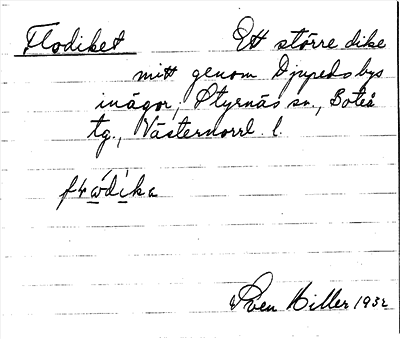 Flodiket Ett större dike
mitt genom Djupeds bys
inägor, Styrnäs sn., Boteå
tg., Västernorrl. l.
Sven Hiller 1932